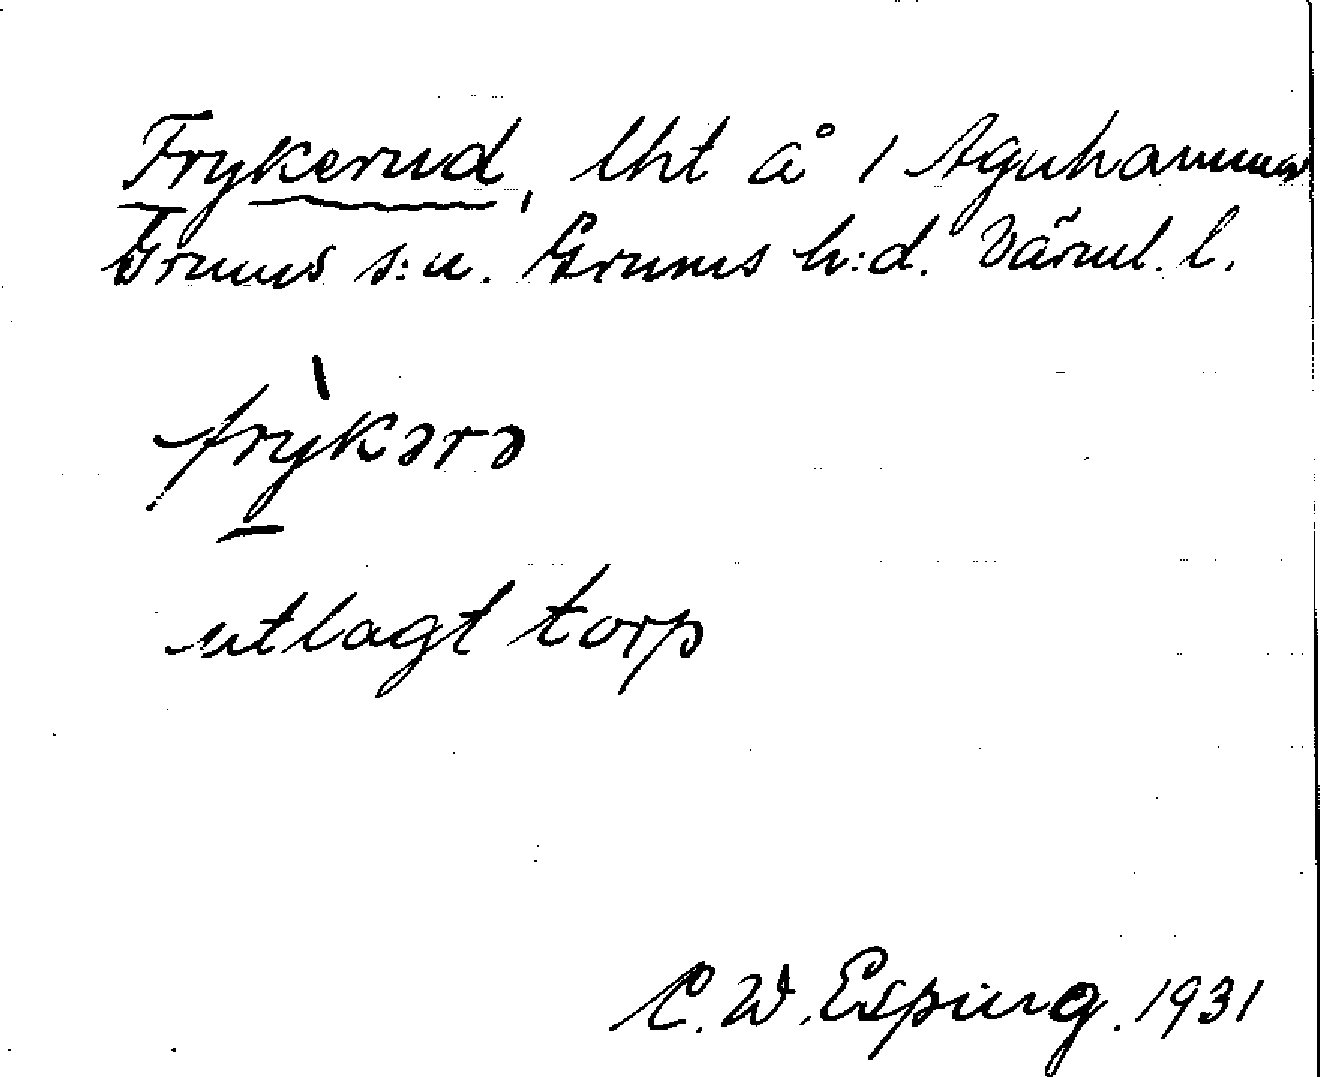 Frykerud, lht å 1 Agnhammar
Grums s:n. Grums h:d. Värml. l.
frỳkərə
utlagt torp
C. W. Esping. 1931